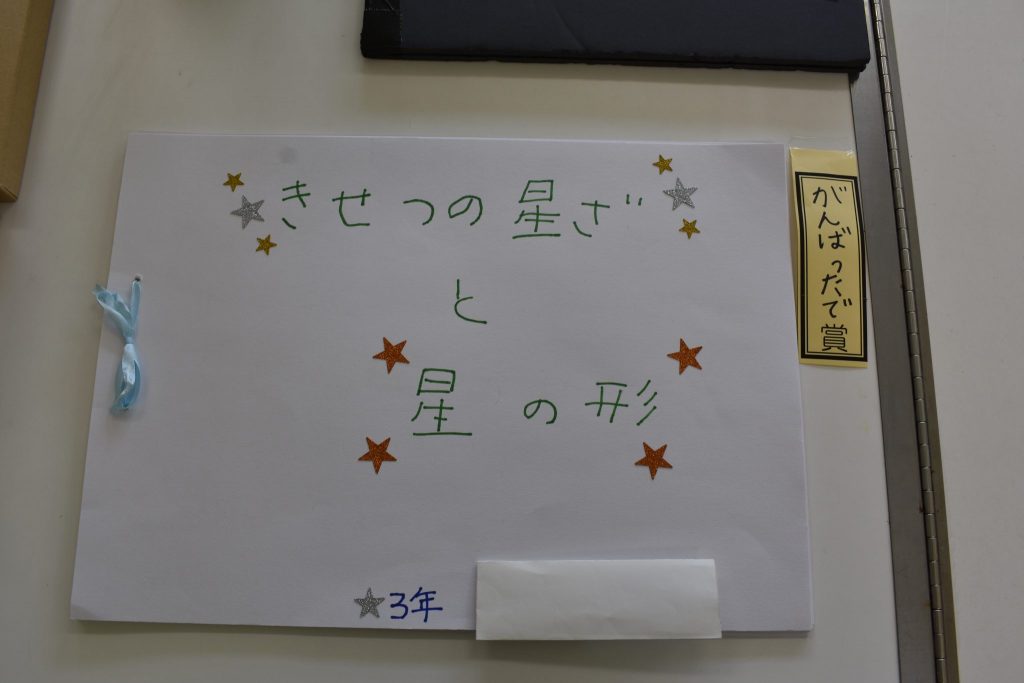 きせつの星ざ
と
星の形
3年
がんばったで賞